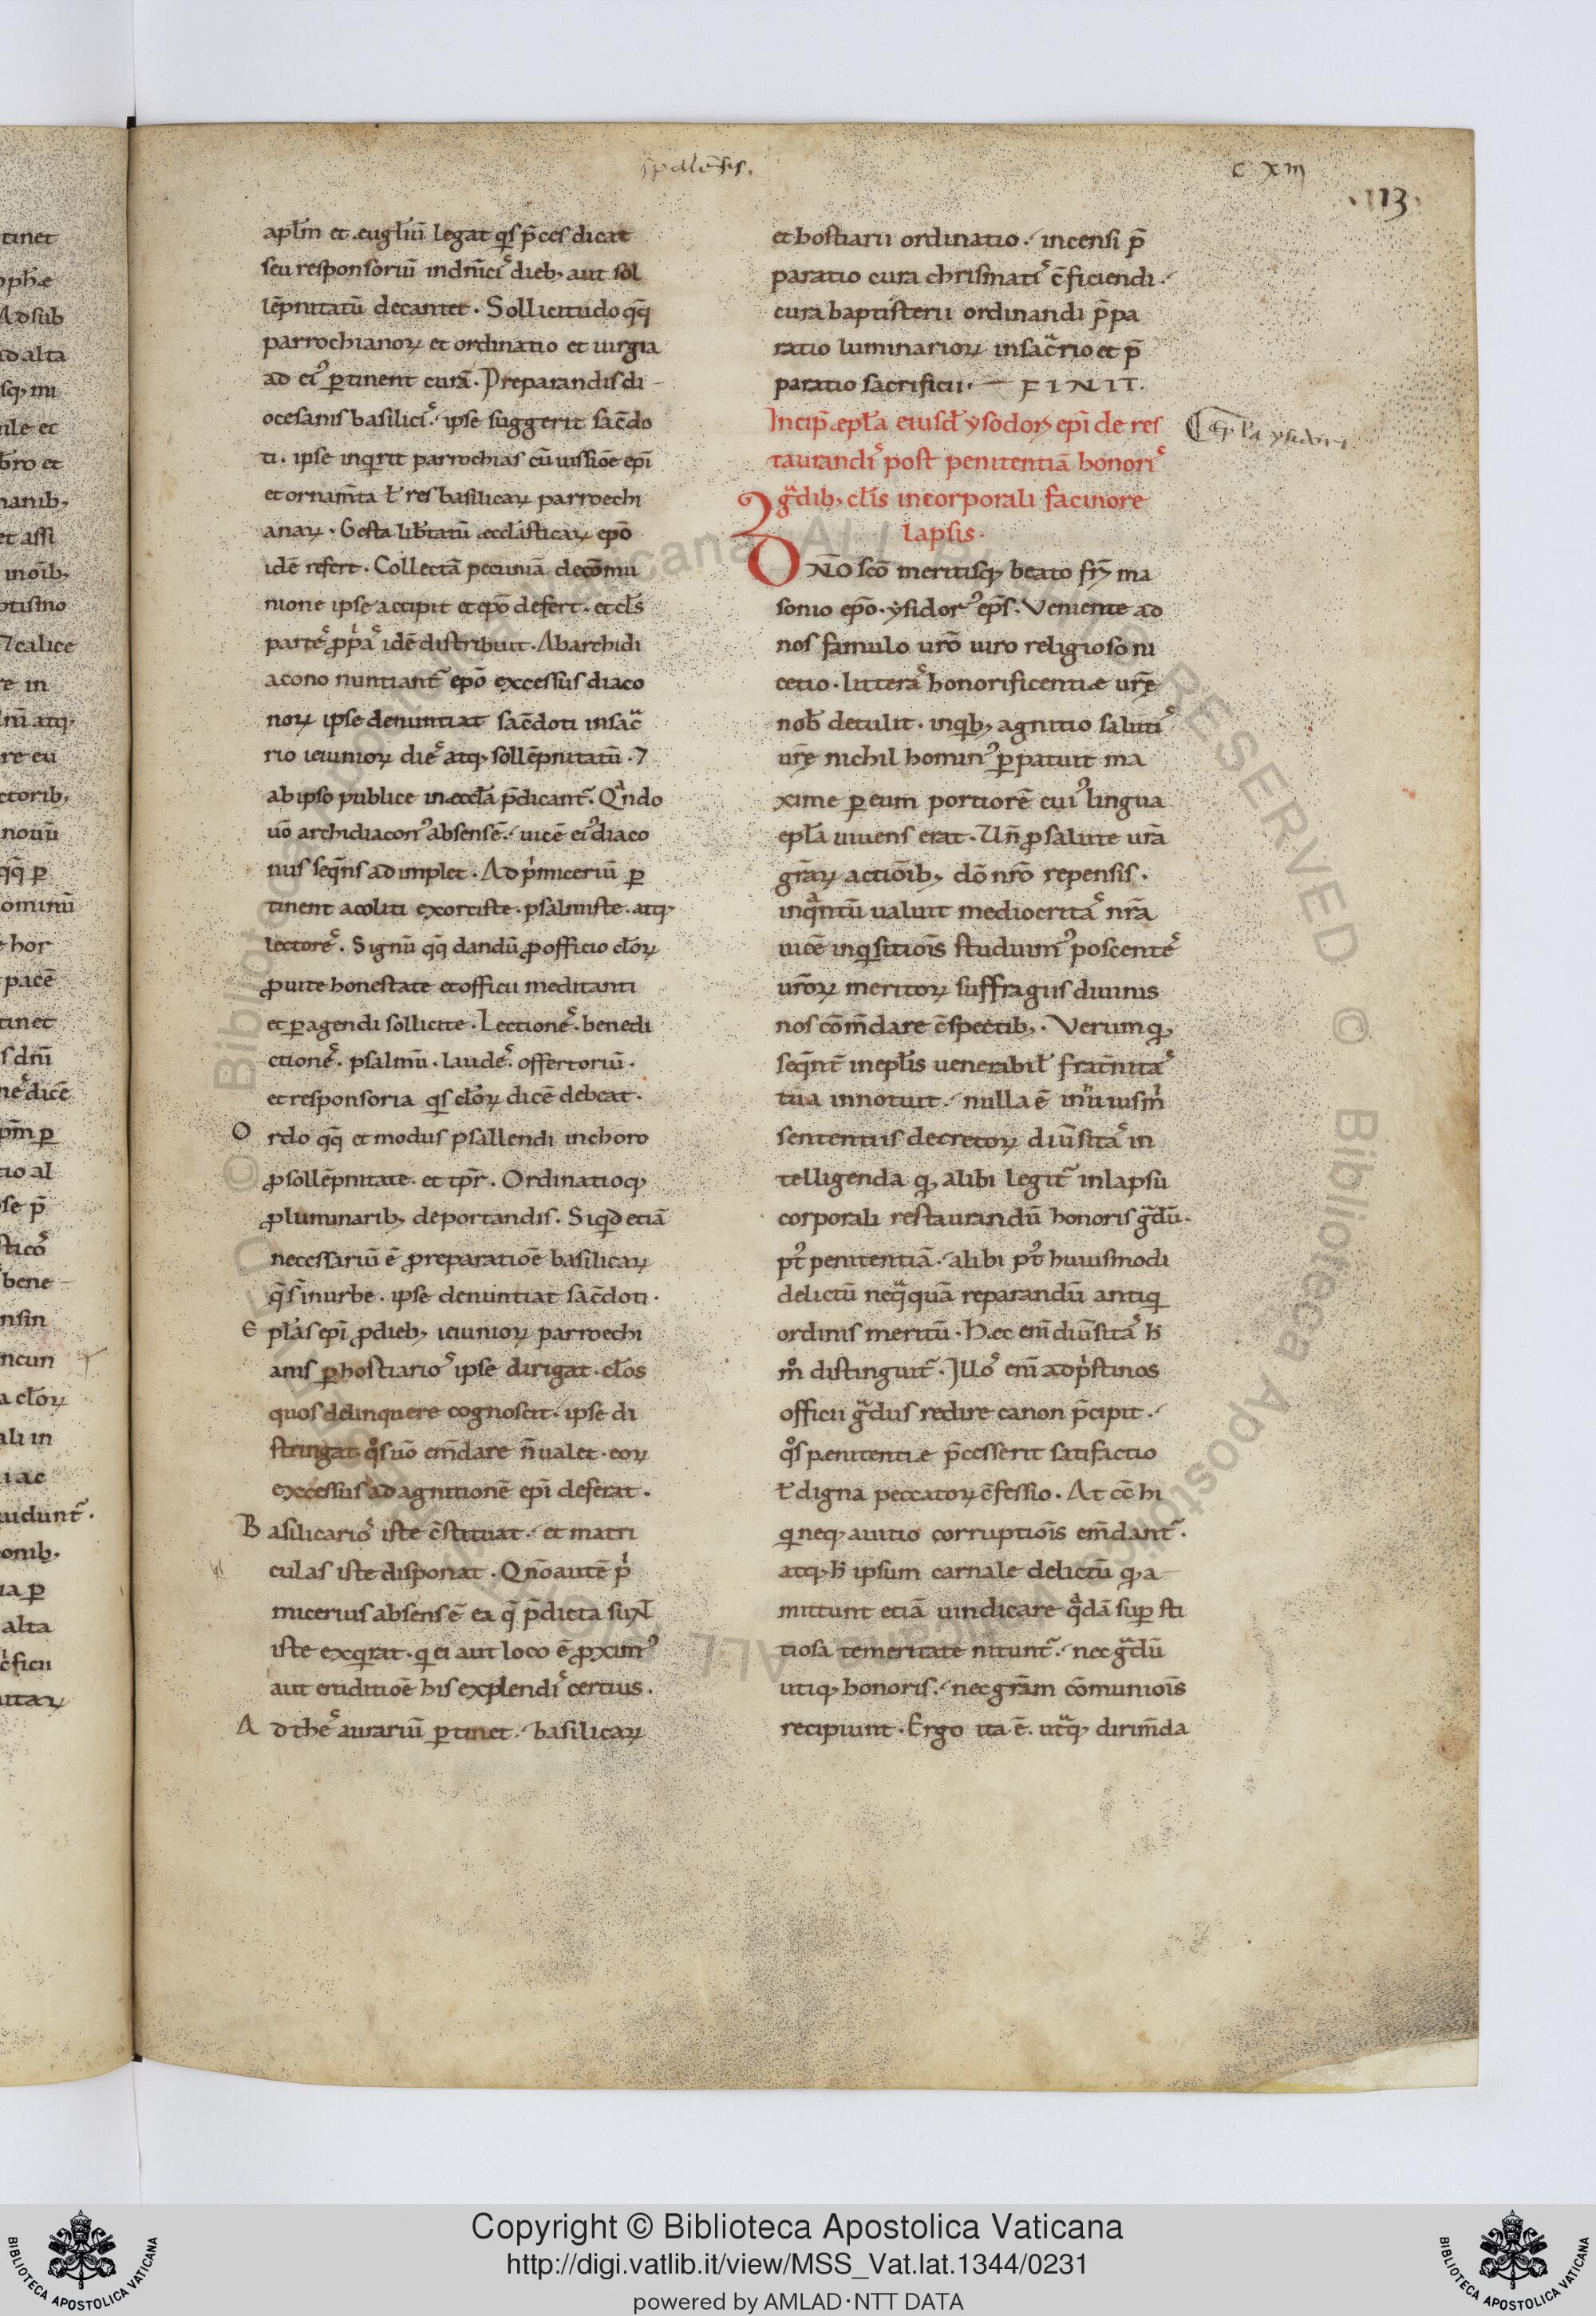 spalēsis.
c xiii
.113.
apl̄m et euḡliū legat qͥs p̄ces dicat
seu responsoriū indn̄iciˢ dieb; aut sol
lēpnitatū decantet. Sollicitudo qq̄
parrochianoꝝ et ordinatio et iurgia
ad eiꝰ ꝑtinent curā. Preparandis di-
ocesanis basiliciˢ. ipse suggerit sac̄do
ti. ipse inqͥrit parrochias cū iussiōe ep̄i
et ornam̄ta ł res basilicaꝝ parroechi
anaꝝ. Gesta lib̄tatū eccl̄asticaꝝ ep̄o
idē refert. Collectā pecuniā decōmu
nione ipse accipit et ep̄o defert. et cl̄s
parteˢ ꝓpͥaˢ idē distribuit. Abarchidi
acono nuntiant᷑ ep̄o excessus diaco
noꝝ ipse denuntiat sac̄doti insacͣ
rio ieiunioꝝ dieˢ atq; sollēpnitatū. ⁊
abipso publice inæccl̄a p̄dicant᷑. Qͣndo
uō archidiaconꝰ absensē. uicē eiꝰ diaco
nus seqn̄s adimplet. Ad pͥmiceriū ꝑ
tinent acoliti exorciste. psalmiste. atq;
lectoreˢ. Signū qq̄ dandū ꝓofficio cl̄oꝝ
ꝓuite honestate etofficii meditanti
et ꝑagendi sollicite. Lectioneˢ. benedi
ctioneˢ. psalmū. laudeˢ. offertoriū.
et responsoria qͥs cl̄oꝝ dicē debeat.
O rdo qq̄ et modus psallendi inchoro
ꝓsollēpnitate. et tp̄r. Ordinatioq;
ꝓluminarib; deportandis. Siqͥd etiā
necessariū ē ꝓreparatiōe basilicaꝝ
q̄ s̄ inurbe. ipse denuntiat sac̄doti.
E pl̄as ep̄i ꝓdieb; ieiunioꝝ parroechi
anis ꝑhostiarioˢ ipse dirigat. cl̄os
quos delinquere cognoscit. ipse di
stringat qͦs uō em̄dare n̄ ualet. eoꝝ
excessus ad agnitionē ep̄i deferat.
B asilicarioˢ iste c̄stituat. et matri
culas iste disponat. Qn̄o autē pͥ
micerius absens ē ea q̄ p̄dicta sunt
iste exqͥrat. qͥ ei aut loco ē ꝓximꝰ
aut eruditiōe his explendiˢ certius.
A d theˢaurariū ꝑtinet. basilicaꝝ
et hostiarii ordinatio. incensi p̄
paratio cura chrismatiˢ c̄ficiendi.
cura baptisterii ordinandi p̄pa
ratio luminarioꝝ insacͣrio et p̄
paratio sacrificii. — FINIT.
Incip̄ æpl̄a eiusd̄ ysodoꝝ ep̄i de res
taurandiˢ post penitentiā honoriˢ
gͣdib; cl̄is incorporali facinore
lapsis.
DN̄O scō meritisq; beato fr̄i ma
sonio ep̄o. ysidorꝰ ep̄s. Veniente ad
nos famulo ur̄o uiro religioso ni
cetio. litteraˢ honorificentiæ ur̄ę
nob̄ detulit. inqͥb; agnitio salutiˢ
ur̄ę nichil hominꝰ ꝑpatuit ma
xime ꝑ eum portiorē cuiꝰ lingua
epl̄a uiuens erat. Un̄ ꝓ salute ur̄a
gr̄aꝝ actiōib; dō nr̄o repensis.
inqͣntū ualuit mediocritaˢ nr̄a
uicē inqͥsitiōis studuimꝰ poscenteˢ
ur̄oꝝ meritoꝝ suffragiis diuinis
nos cōm̄dare c̄spectib;. Verum q;
seqn̄t᷑ in epl̄is uenerabil̄ frat̄nitaˢ
tua innotuit. nulla ē in hͥuiusmͥ
sententiis decretoꝝ diūsitaˢ in
telligenda q; alibi legit᷑ inlapsu
corporali restaurandū honoris gͣdū.
pꝰt penitentiā. alibi pꝰt huiusmodi
delictū neqͣquā reparandū antiqͥ
ordinis meritū. Hæc em̄ diūsitaˢ h̄
mͦ distinguit᷑. Illoˢ em̄ adpͥstinos
officii gͣdus redire canon p̄cipit.
qͦs pænitentiæ p̄cesserit satisfactio
ł digna peccatoꝝ c̄fessio. At cc̄ hi
qͥ neq; auitio corruptiōis em̄dant᷑.
atq; h̄ ipsum carnale delictū q; a
mittunt etiā uindicare qͣdā suꝑsti
tiosa temeritate nitunt᷑. nec gͣdū
utiq; honoris. nec gr̄am cōmuniōis
recipiunt. Ergo ita ē. utͣq; dirim̄da
Epl̄a ysidori
Copyright © Biblioteca Apostolica Vaticana
http://digi.vatlib.it/view/MSS_Vat.lat.1344/0231
powered by AMLAD·NTT DATA